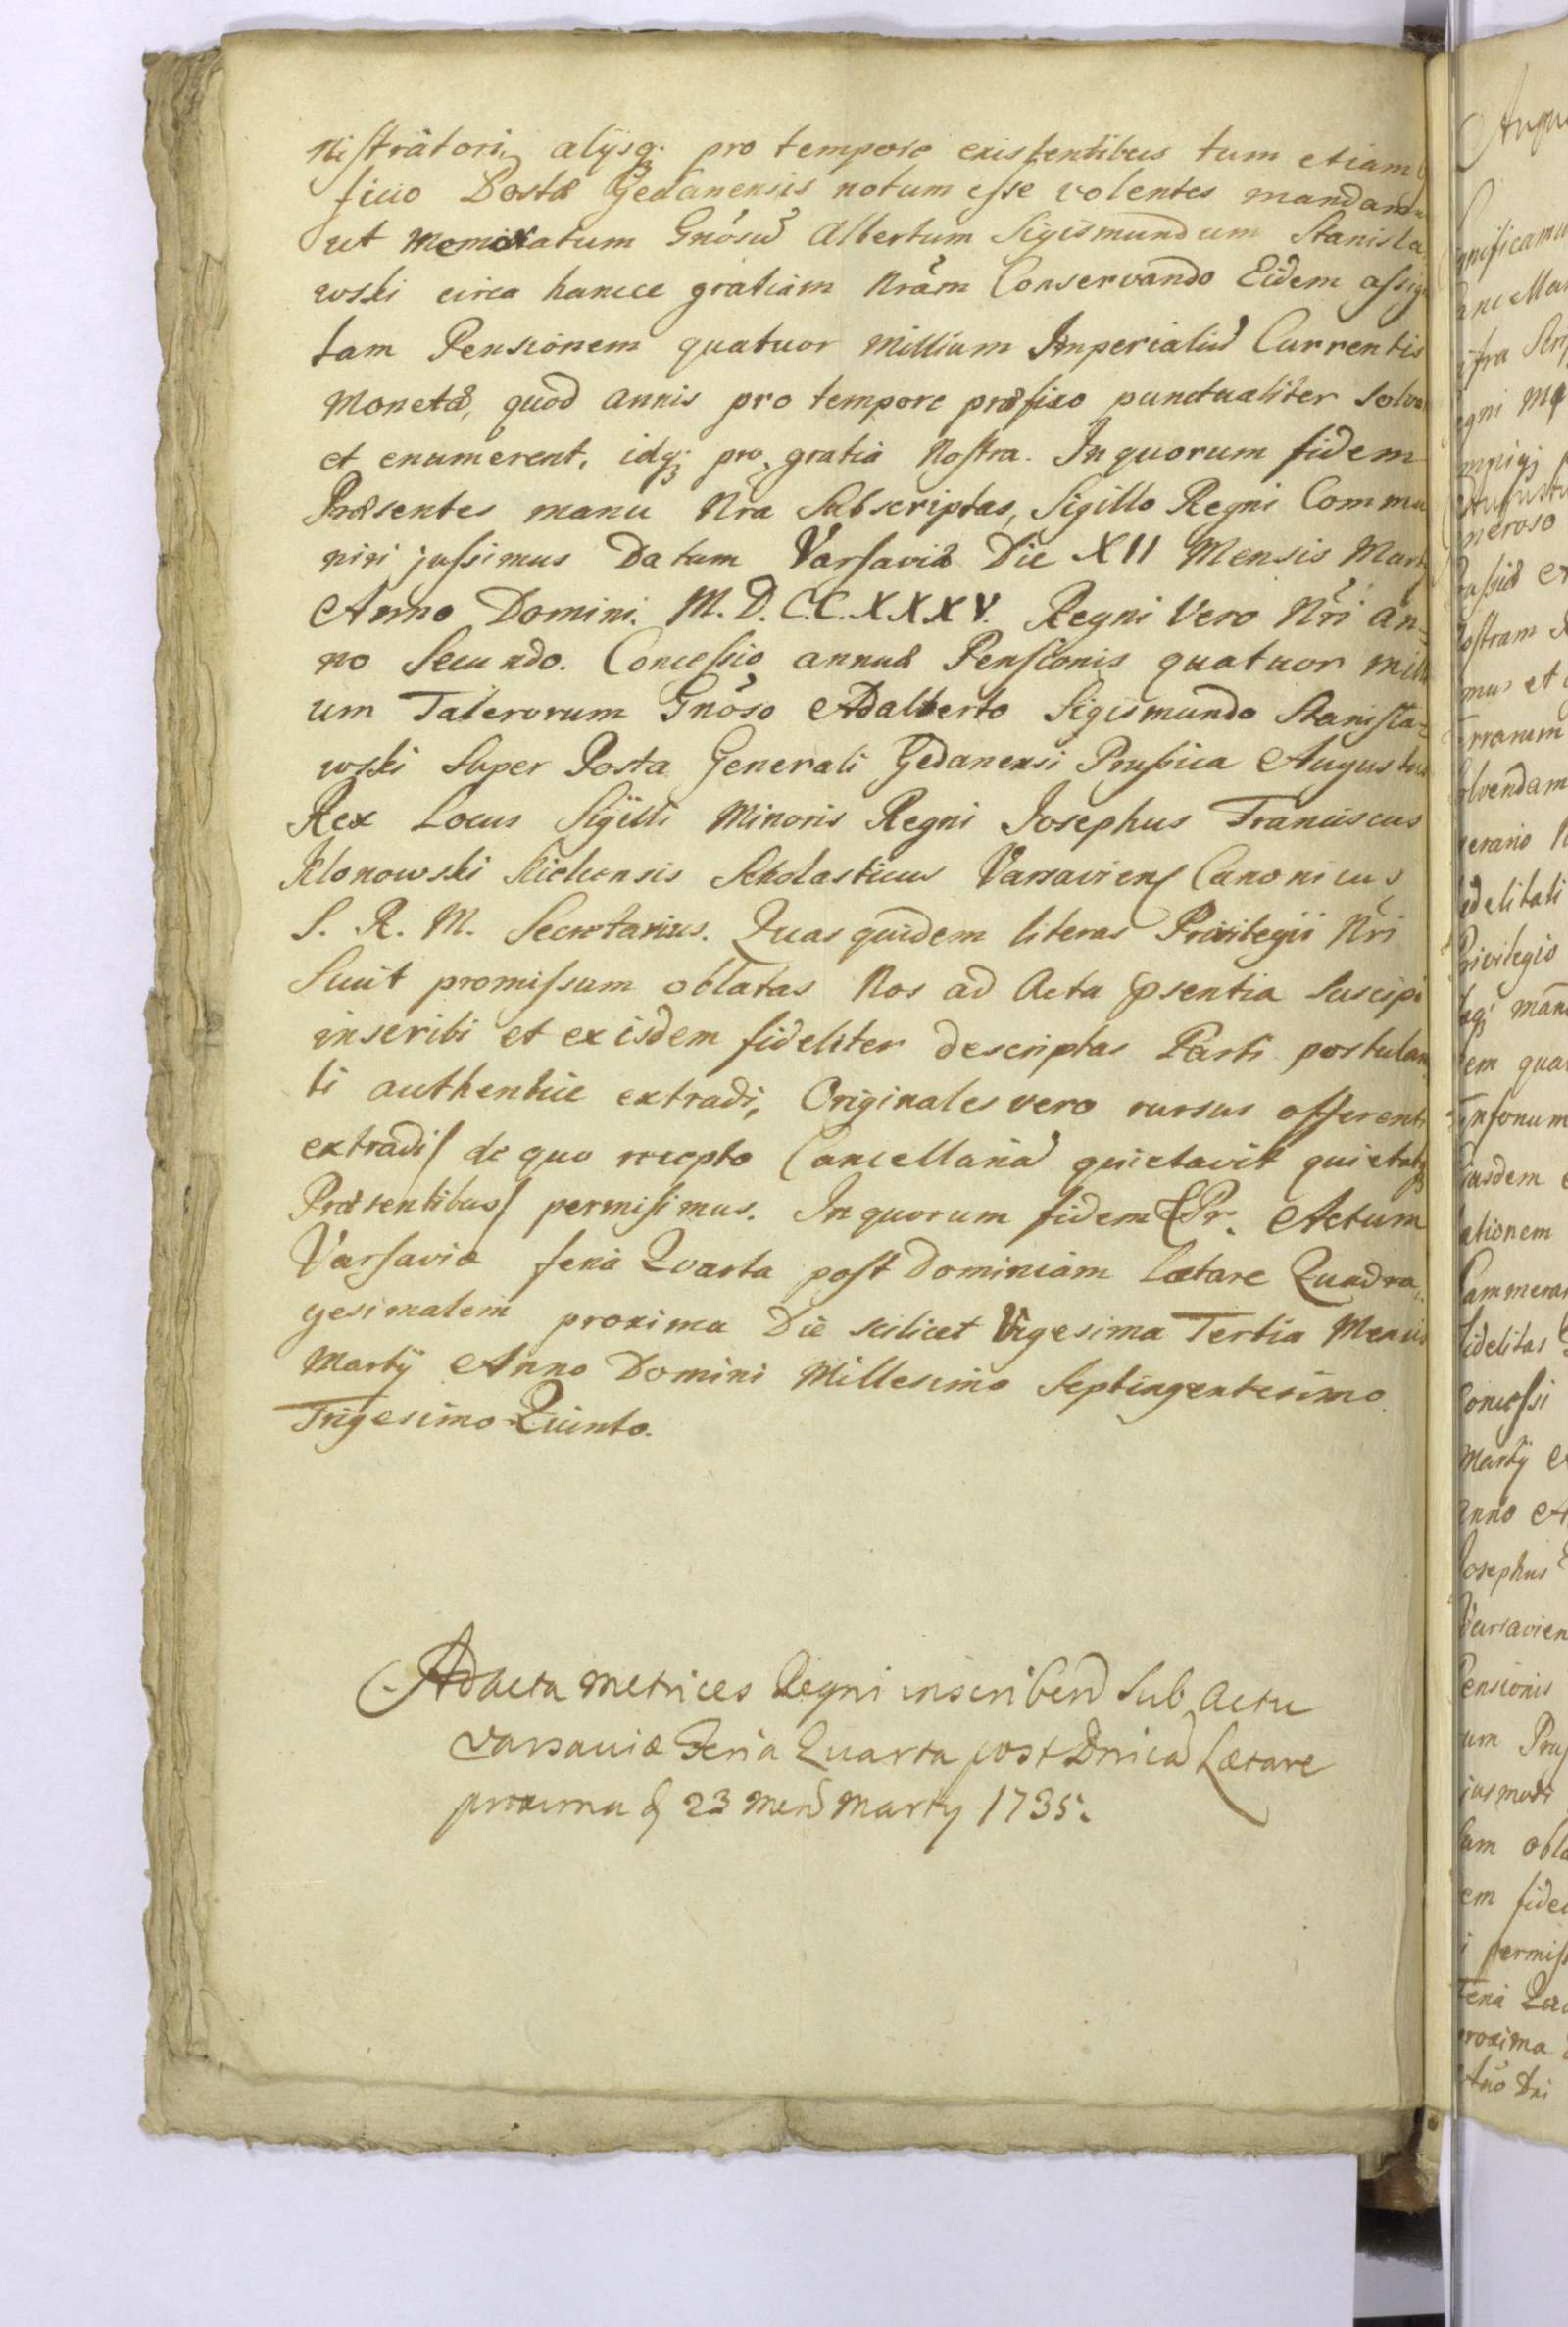 nistratori, alijsq; pro tempore existentibus tum etiam
ficio Postæ Gedanensis notum esse volentes mandam
ut memoratum Gnosũ Albertum Sigismundum Stanisla
wski circa hancce gratiam Nram Conservando Eidem assig
tam Pensionem quatuor millium Imperialiũ Currentis
Monetæ, quod annis pro tempore præfixo punctualiter solva
et enumerent, idq; pro gratia Nostra. In quorum fidem
Præsentes manu Nra Subscriptas, Sigillo Regni Commu
niri jussimus Datum Varsaviæ Die XII Mensis Martij
Anno Domini. M.D.C.C.X.X.X.V. Regni Vero Nri An=
no Secundo. Concessio annuæ Pensionis quatuor milli
um Talerorum Gnoso Adalberto Sigismundo Stanisla=
wski Super Posta Generali Gedanensi Prussica Augustus
Rex Locus Sigilli Minoris Regni Josephus Franciscus
Klonowski Scholasticus Varsavien Canonicus
S. R. M. Secretarius. Quas quidem literas Privilegii Nri
Sunt promissum oblatas Nos ad Acta psentia Suscipi
inscribi et ex iisdem fideliter descriptas Parti postulan
ti authentice extradi, Originales vero rursus offerenti
extradi/ de quo recepto Cancellariã quietavit quietatq;
Præsentibus/ permisimus. In quorum fidem &Pr. Actum
Varsaviæ feria Quarta post Dominicam Lætare Quadra,
gesimalem proxima Die scilicet Vigesima Tertia Mensis
Martij Anno Domini Millesimo Septingentesimo
Trigesimo Quinto.
Ad acta Metrices Regni inscribend Sub Actu
Varsaviæ Feria Quarta post Dnicã Lætare
proxima 23 Mens Martij 1735.
Augu
gnificamu
ancellar
gni
neroso
ostram
mus et
rrarum
olvendam
nerario
edelitati
rivilegio
em qua
iusdem
ationem
ammerar
idelitas
oncessi
Martij
Anno
Josephus
Varsavien
Pensionis
um Prus
iusmodi
um obla
em fide
permiss
Feria Qu
roxima
Año Dni